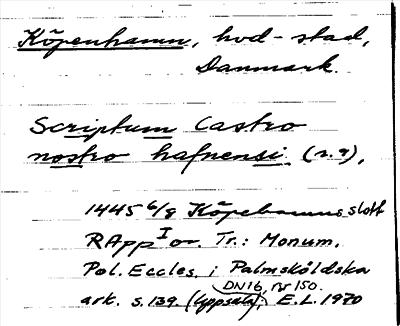 Köpenhamn, hvd-stad,
Danmark.
Scriptum Castro
nostro hafnensi (r.9),
1445 6/9 Köpehamns slott
RApp I or. Tr.: Monum.
Pol. Eccles. i Palmsköldska
DN16, nr 150.
ark. s. 139 (Uppsala); E.L. 1970